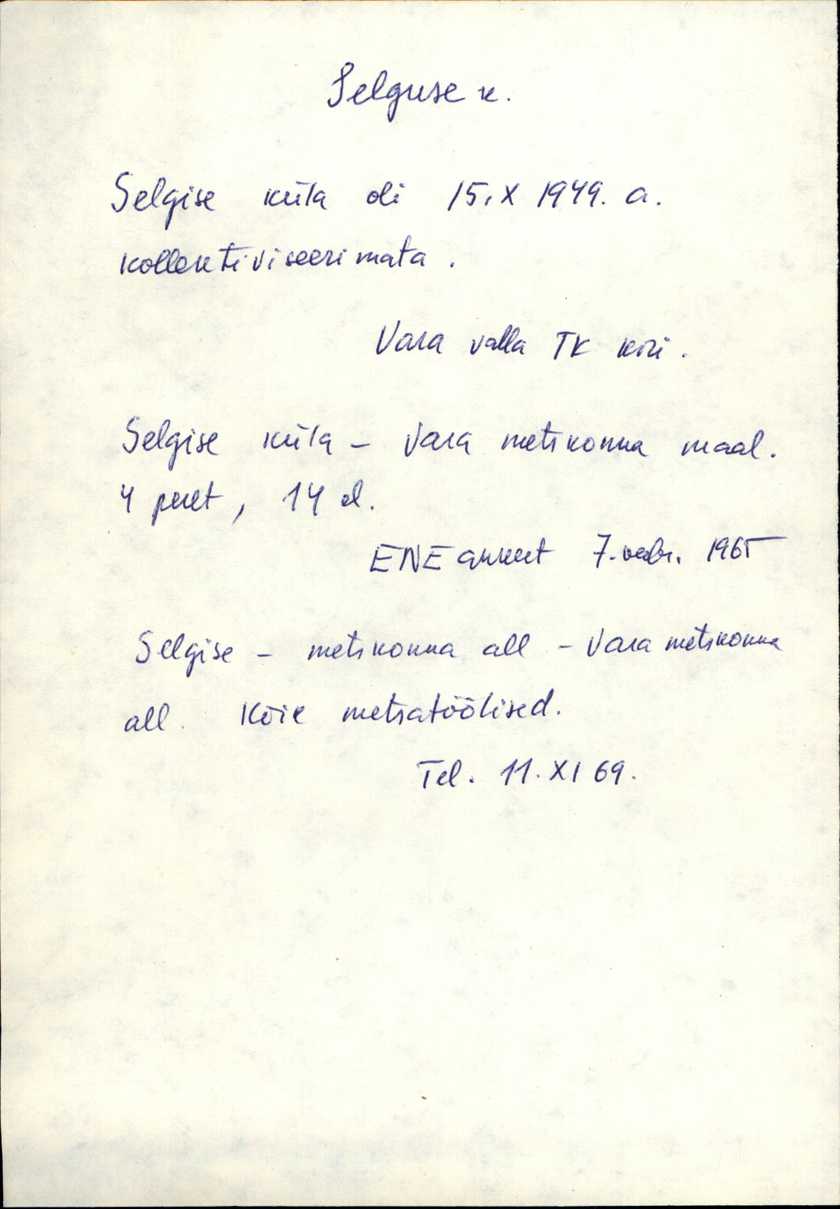 Selguse k.
Selgise küla oli 15. X 1949. a.
kollektiviseerimata.
Vara valla TK kiri.
Selgise küla - Vara metskonna maal.
4 peret, 14 el.
ENE ankeet 7. veebr. 1965
Selgise - metskonna all - Vara metskonna
all. Kõik metsatöölised.
Tel. 11. XI 69.